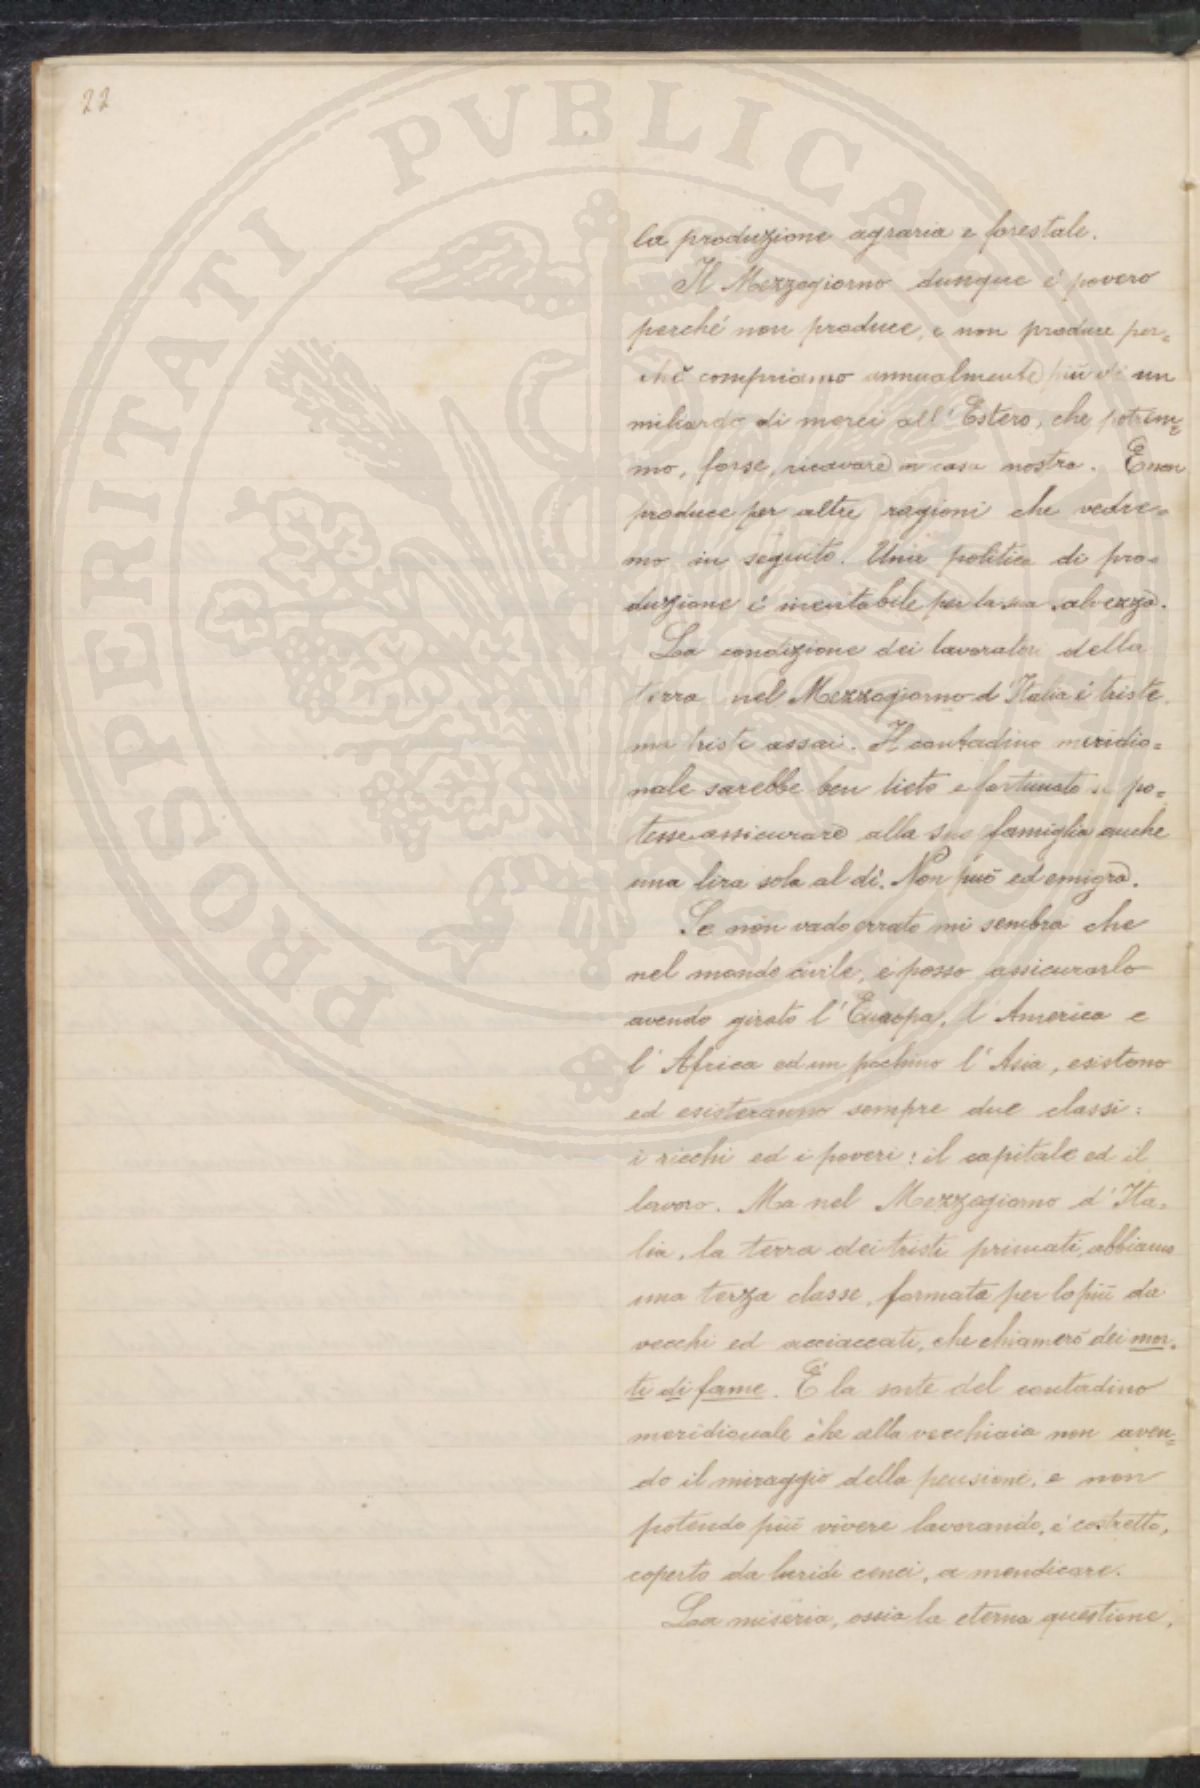 22
PROSPERITATI PVBLICAE
la produzione agraria e forestale.
Il Mezzogiorno dunque é povero
perché non produce, e non produce per=
ché compriamo annualmente più di un
miliardo di merci all'Estero, che potrem=
mo, forse, ricavare in casa nostra. E non
produce per altre ragioni che vedre=
mo in seguito. Una politica di pro=
duzione é inevitabile per la sua salvezza.
La condizione dei lavoratori della
terra nel Mezzogiorno d'Italia é triste,
ma triste assai. Il contadino meridio=
nale sarebbe ben lieto e fortunato se po=
tesse assicurare alla sua famiglia anche
una lira sola al dí. Non può ed emigra.
Se non vado errato mi sembra che
nel mondo civile, e posso assicurarlo
avendo girato l'Europa, l'America e
l'Africa ed un pochino l'Asia, esistono
ed esisteranno sempre due classi:
i ricchi ed i poveri: il capitale ed il
lavoro. Ma nel Mezzogiorno d'Ita=
lia, la terra dei tristi primati, abbiamo
una terza classe, formata per lo più da
vecchi ed acciaccati, che chiameró dei mor=
ti di fame. É la sorte del contadino
meridionale che alla vecchiaia non aven=
do il miraggio della pensione, e non
potendo più vivere lavorando, é costretto,
coperto da luridi cenci, a mendicare.
La miseria, ossia la eterna questione,